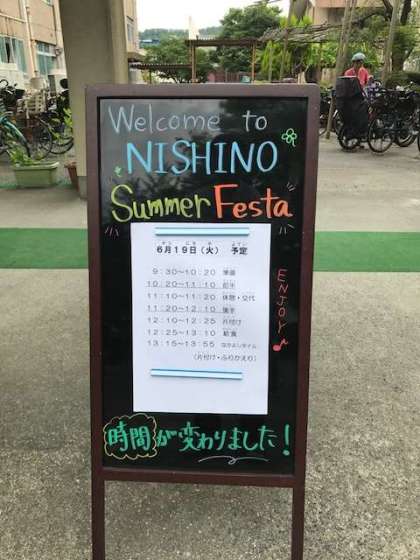 Welcome to
NISHINO
Summer Festa
6月19日(火) 予定
9:30~10:20 準備
10:20~11:10 前半
11:10~11:20 休憩・交代
11:20~12:10 後半
12:10~12:25 片付け
12:25~13:10 給食
13:15~13:55 なかよしタイム
(片付け・ふりかえり)
ENJOY♪
時間が変わりました!